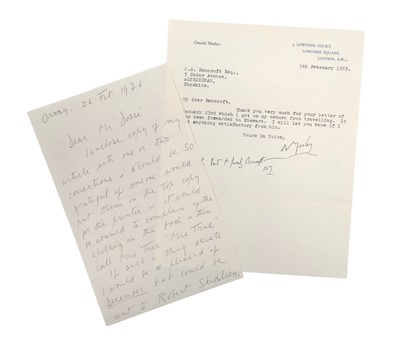 Orsay, 26 Feb 1976
Dear Mr Dosse
I enclose copy of my
article with one or two
corrections & would be SO
grateful if someone would
put them on the top copy
for the printer – it would
be absurd to complain of the
spelling in the book & then
call Mrs Tree "Mrs True".
If such a thing exists
I would be so pleased if
December
could be
sent to Robert Skidelsky,
Oswald Mosley.
5, LOWNDES COURT,
LOWNDES SQUARE,
LONDON, S.W.1.
5th February 1963.
J.A. Bancroft Esq.,
5 Oxter Avenue,
ALTRINCHAM,
Cheshire.
My dear Bancroft,
Thank you very much for your letter of
January 23rd which I got on my return from travelling. It
has been forwarded to Stewart. I will let you know if I
get anything satisfactory from him.
Yours in Union,
OMosley
M